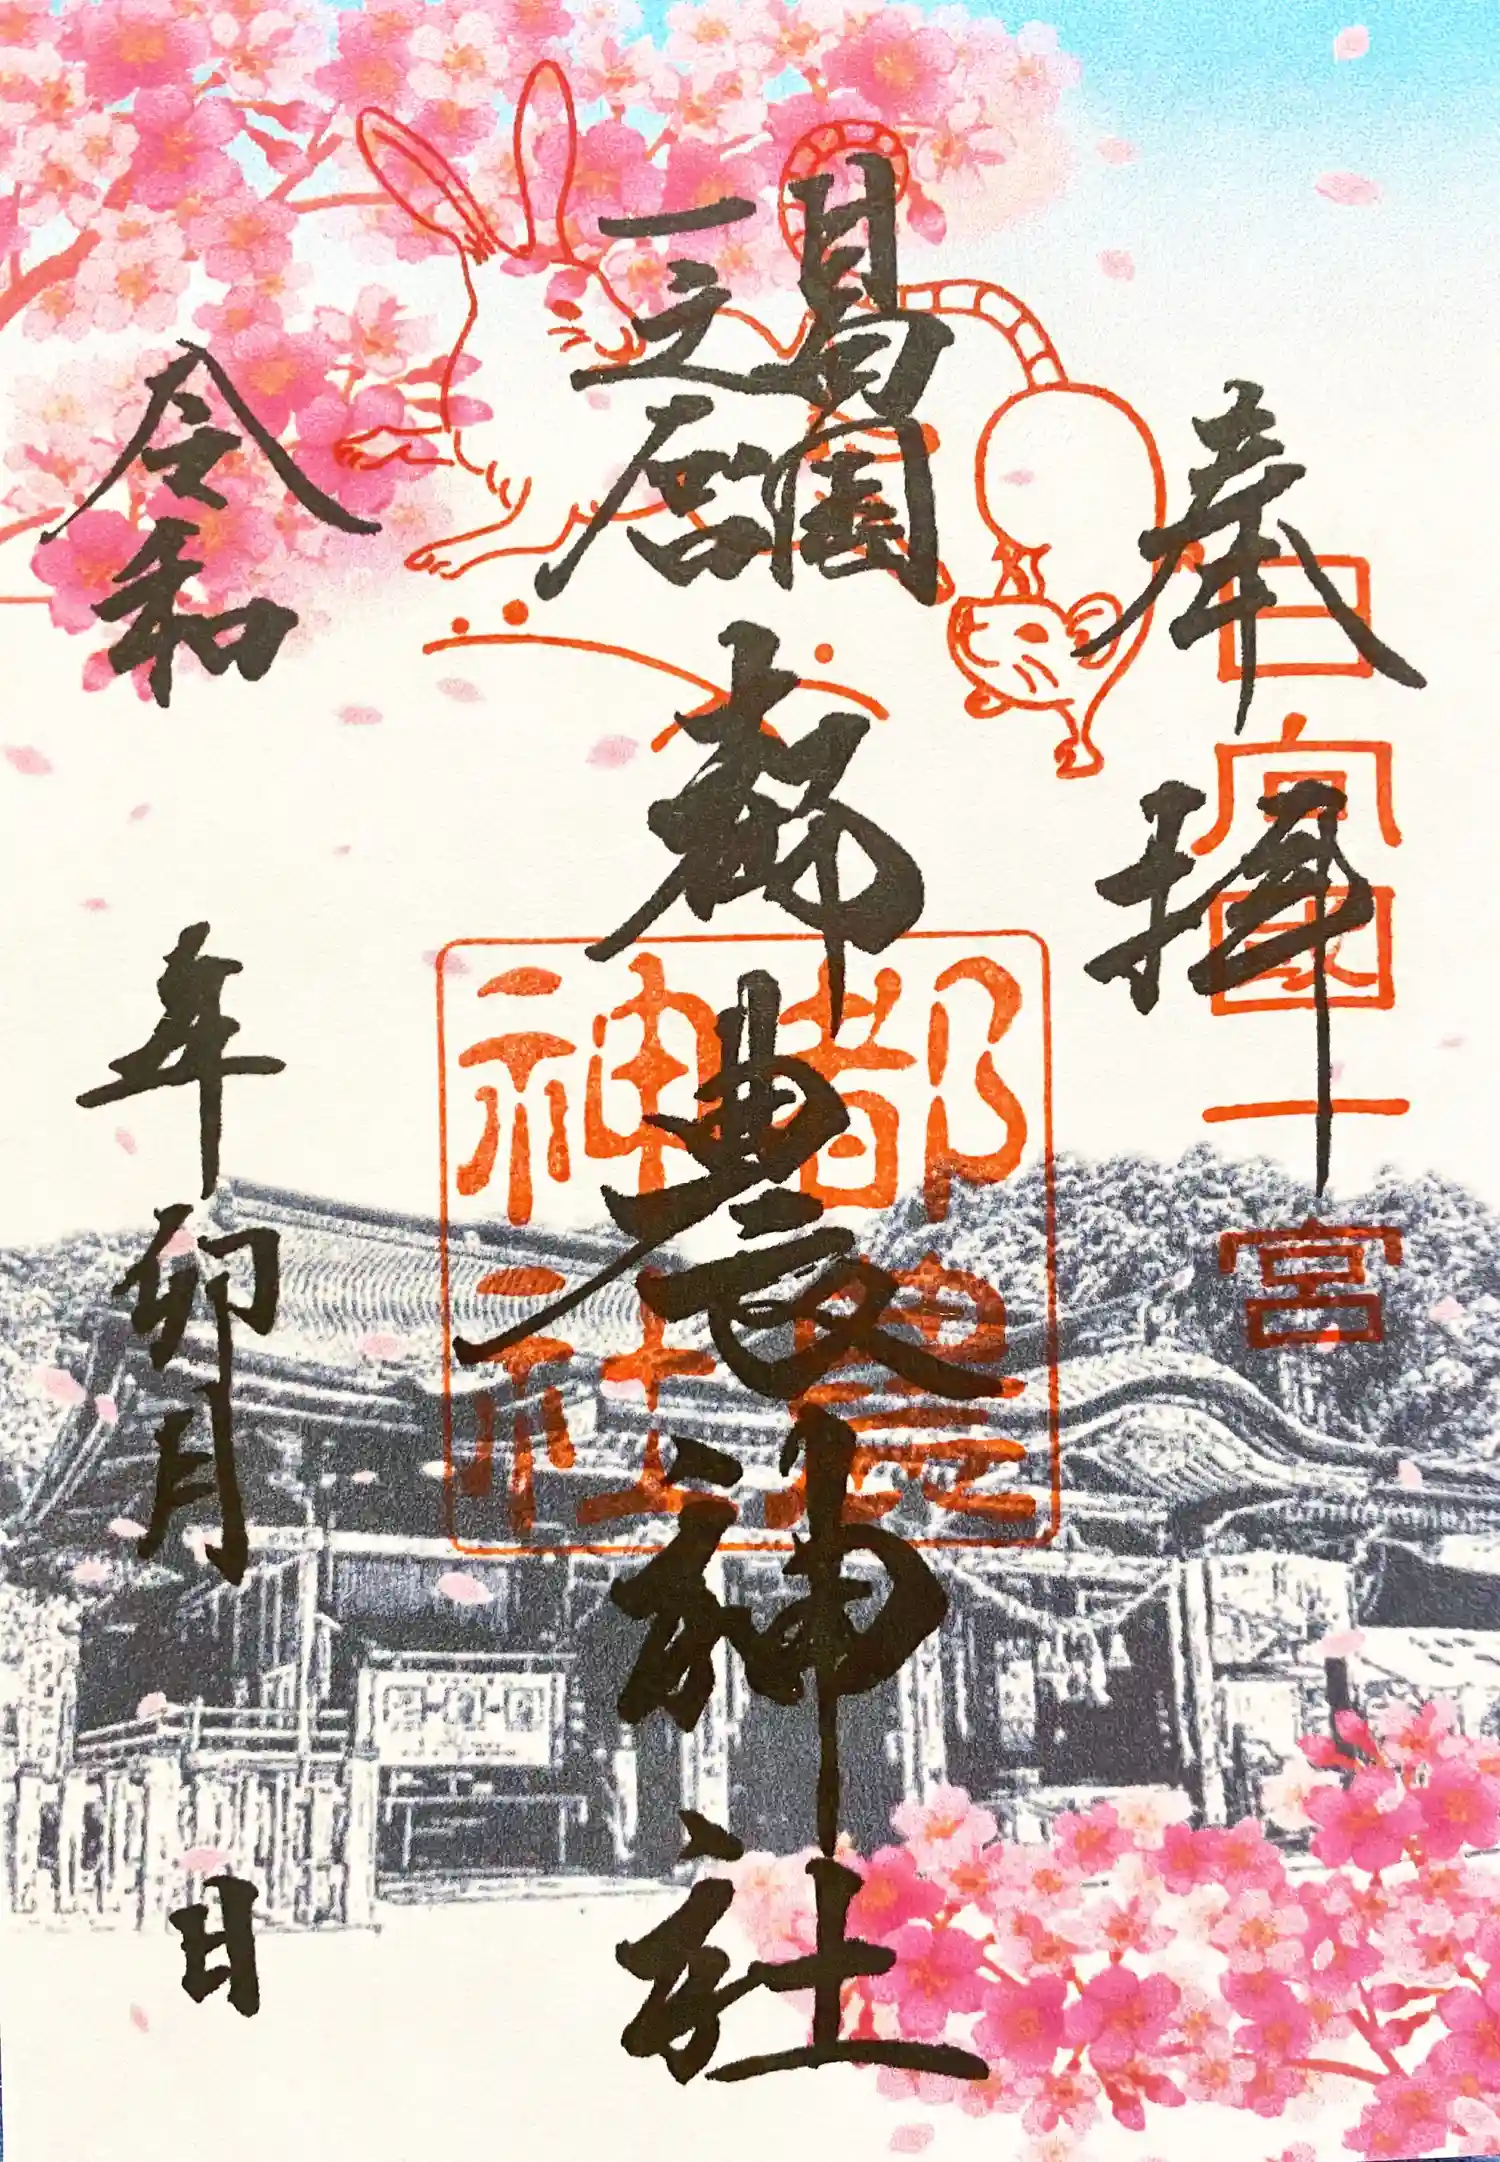 奉拝
日向國一宮
日向國
一之宮
都農神社
都農神社
令和 年卯月 日